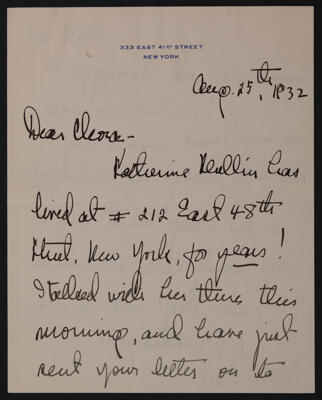 333 EAST 41ST STREET
NEW YORK
Aug. 25th, 1932
Dear Cleora -
Katherine Mullin has
lived at # 212 East 48th
Street, New York, for years!
I talked with her there this
morning, and have just
sent your letter on to